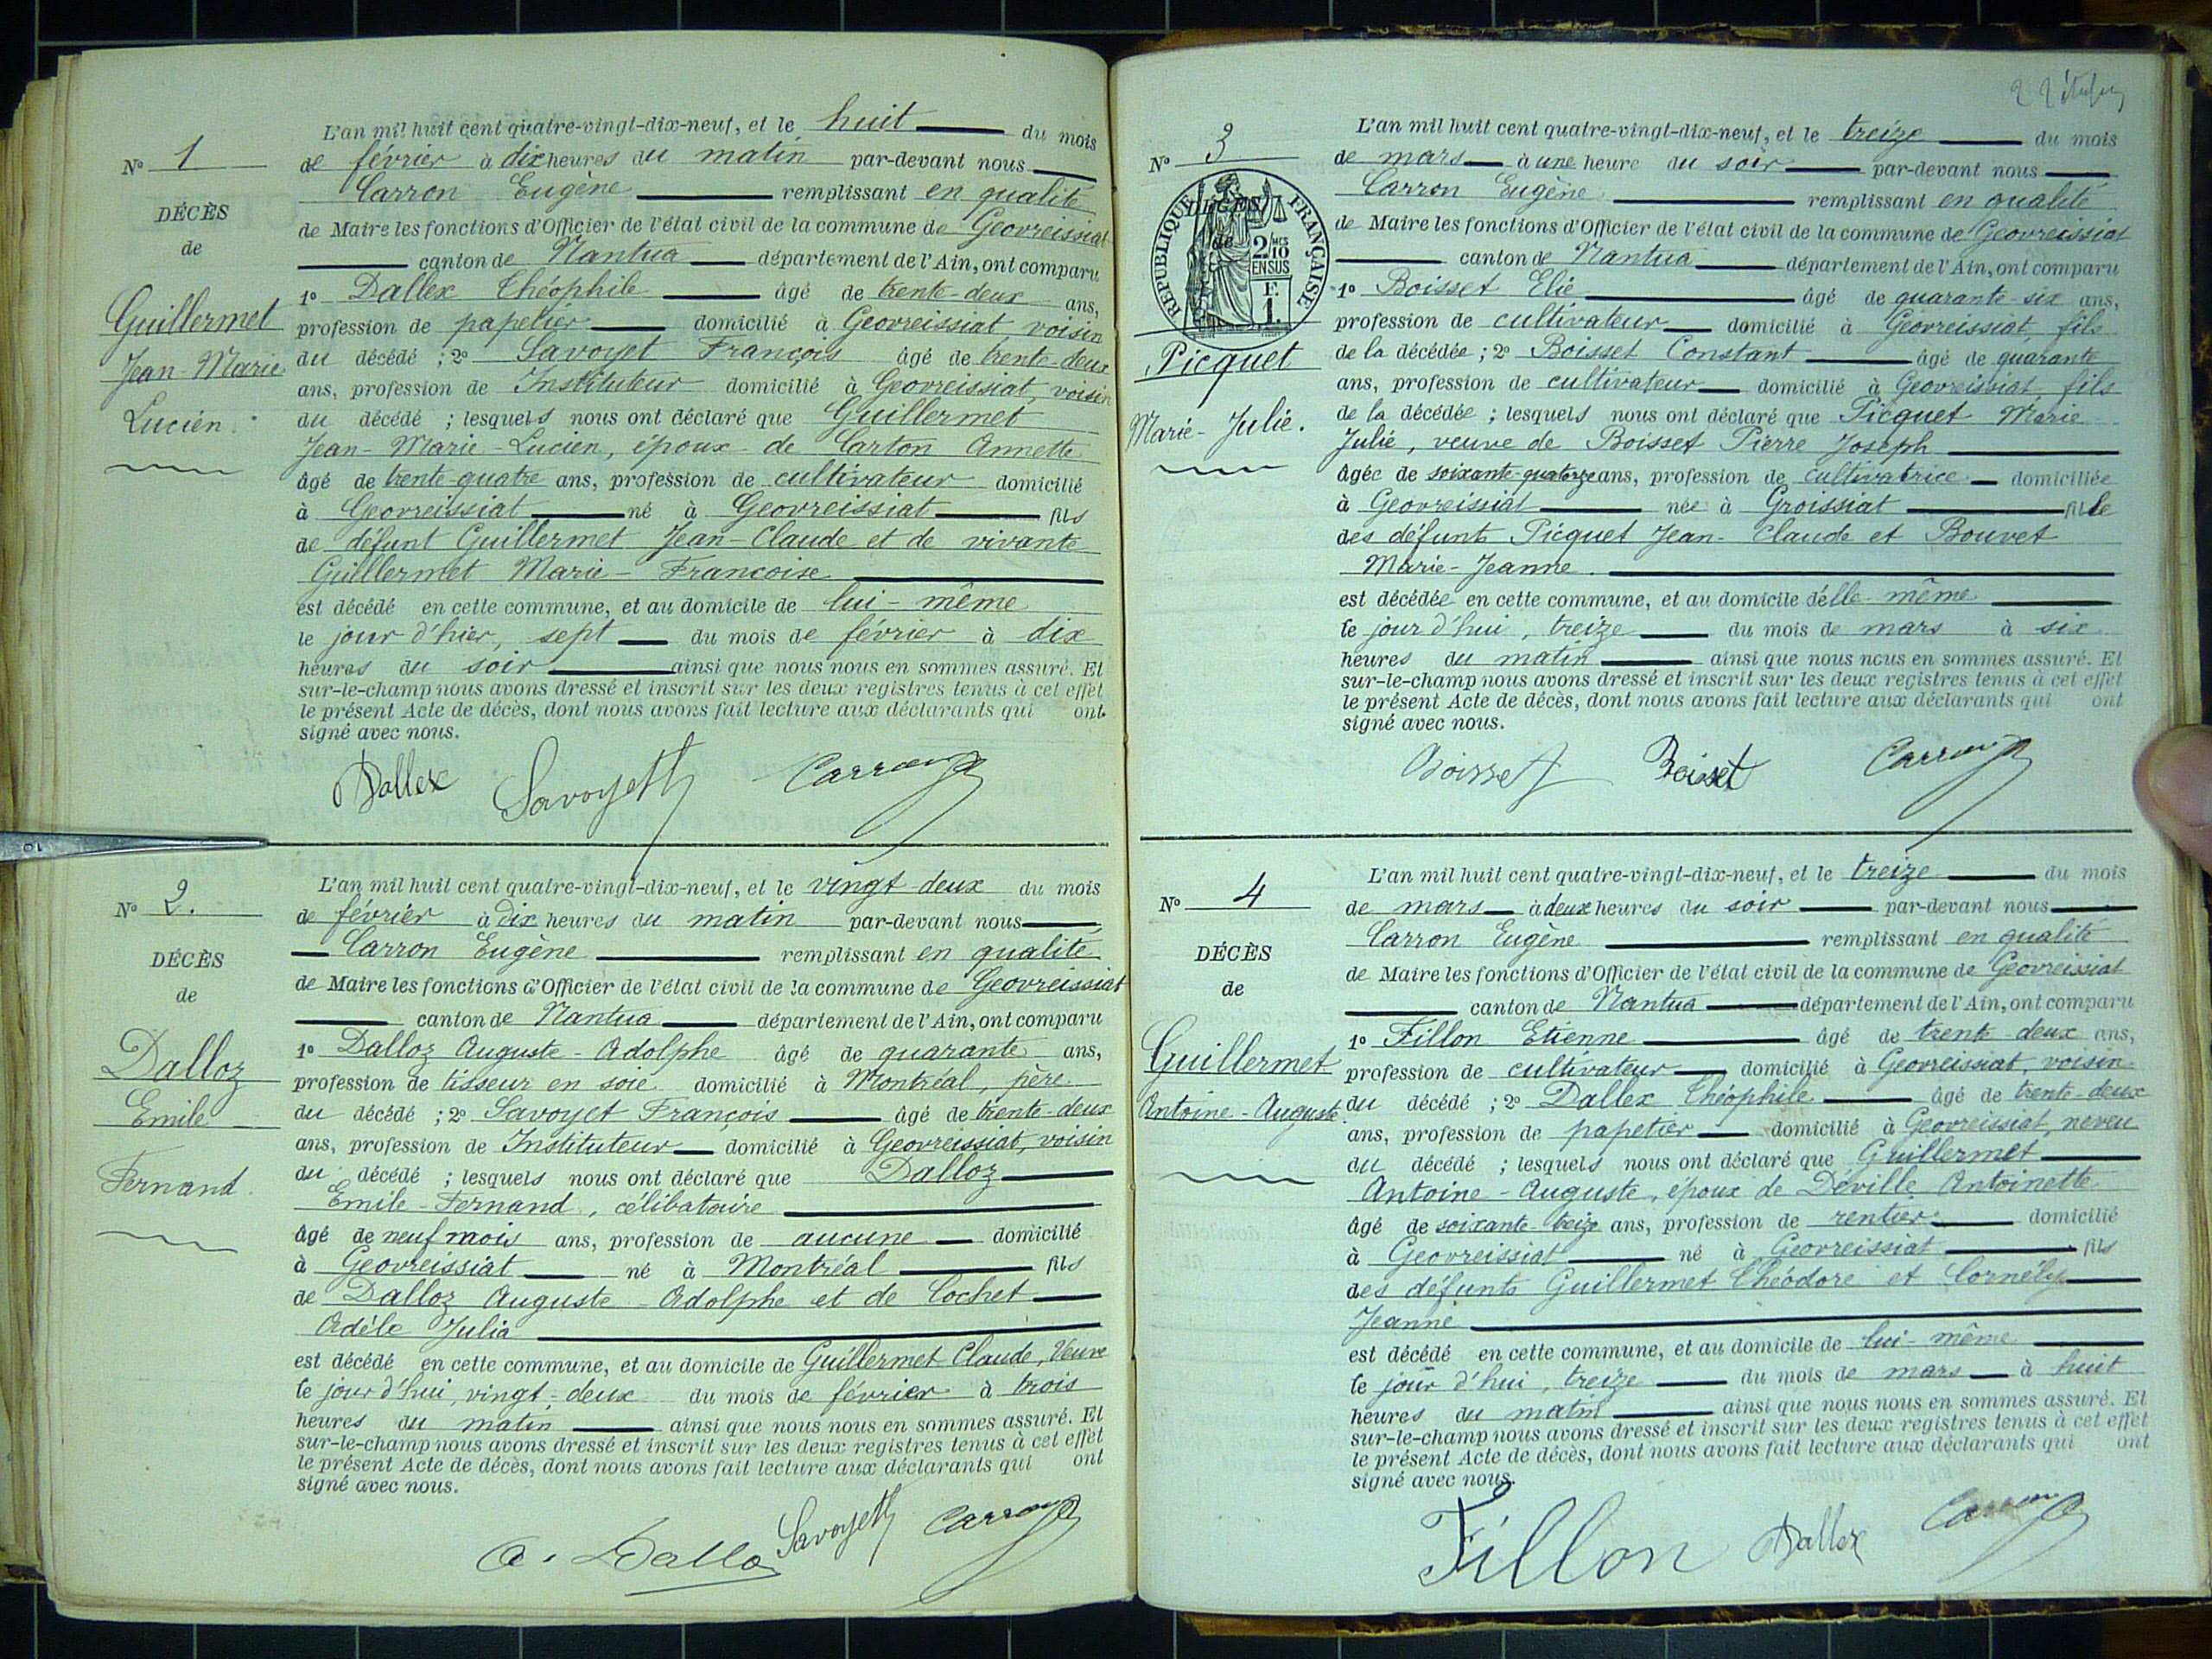 N° 1
DÉCÈS
de
Guillermet
Jean-Marie
Lucien.
L'an mil huit cent quatre-vingt-dix-neuf, et le huit du mois
de février à dix heures du matin par-devant nous
Carron Eugène remplissant en qualité
de Maire les fonctions d'Officier de l'état civil de la commune de Geovreissiat
canton de Nantua département de l'Ain, ont comparu
1° Dallex Théophile âgé de trente-deux ans,
profession de papetier domicilié à Geovreissiat voisin
du décédé ; 2° Savoyet François âgé de trente-deux
ans, profession de Instituteur domicilié à Geovreissiat, voisin
du décédé ; lesquels nous ont déclaré que Guillermet
Jean-Marie-Lucien, époux de Carton Annette
âgé de trente-quatre ans, profession de cultivateur domicilié
à Geovreissiat né à Geovreissiat fils
de défunt Guillermet Jean-Claude et de vivante
Guillermet Marie-Francoise
est décédé en cette commune, et au domicile de lui-même
le jour d'hier, sept du mois de février à dix
heures du soir ainsi que nous nous en sommes assuré. Et
sur-le-champ nous avons dressé et inscrit sur les deux registres tenus à cet effet
le présent Acte de décès, dont nous avons fait lecture aux déclarants qui ont
signé avec nous.
Dallex Savoyet Carron
N° 2.
DÉCÈS
de
Dalloz
Emile
Fernand.
L'an mil huit cent quatre-vingt-dix-neuf, et le vingt-deux du mois
de février à dix heures du matin par-devant nous
Carron Eugène remplissant en qualité
de Maire les fonctions d'Officier de l'état civil de la commune de Geovreissiat
canton de Nantua département de l'Ain, ont comparu
1° Dalloz Auguste-Adolphe âgé de quarante ans,
profession de tisseur en soie domicilié à Montréal, père
du décédé ; 2° Savoyet François âgé de trente-deux
ans, profession de Instituteur domicilié à Geovreissiat, voisin
du décédé ; lesquels nous ont déclaré que Dalloz
Emile-Fernand, célibatoire
âgé de neuf mois ans, profession de aucune domicilié
à Geovreissiat né à Montréal fils
de Dalloz Auguste-Adolphe et de Cochet
Adèle Julia
est décédé en cette commune, et au domicile de Guillermet Claude, Veuve
le jour d'hui, vingt-deux du mois de février à trois
heures du matin ainsi que nous nous en sommes assuré. Et
sur-le-champ nous avons dressé et inscrit sur les deux registres tenus à cet effet
le présent Acte de décès, dont nous avons fait lecture aux déclarants qui ont
signé avec nous.
A. Dallo Savoyet Carron
N° 3
DÉCÈS
de
RÉPUBLIQUE FRANÇAISE
2/10 MES
EN SUS
F.
1.
Picquet
Marie-Julie.
L'an mil huit cent quatre-vingt-dix-neuf, et le treize du mois
de mars à une heure du soir par-devant nous
Carron Eugène remplissant en qualité
de Maire les fonctions d'Officier de l'état civil de la commune de Geovreissiat
canton de Nantua département de l'Ain, ont comparu
1° Boisset Elie âgé de quarante-six ans,
profession de cultivateur domicilié à Geovreissiat, fils
de la décédée ; 2° Boisset Constant âgé de quarante
ans, profession de cultivateur domicilié à Geovreissiat, fils
de la décédée ; lesquels nous ont déclaré que Picquet Marie
Julie, veuve de Boisset Pierre Joseph
âgée de soixante-quatorze ans, profession de cultivatrice domiciliée
à Geovreissiat née à Groissiat fille
des défunts Picquet Jean-Claude et Bouvet
Marie-Jeanne.
est décédée en cette commune, et au domicile d'elle-même
le jour d'hui, treize du mois de mars à six
heures du matin ainsi que nous nous en sommes assuré. Et
sur-le-champ nous avons dressé et inscrit sur les deux registres tenus à cet effet
le présent Acte de décès, dont nous avons fait lecture aux déclarants qui ont
signé avec nous.
Boisset Boisset Carron
N° 4
DÉCÈS
de
Guillermet
Antoine-Auguste.
L'an mil huit cent quatre-vingt-dix-neuf, et le treize du mois
de mars à deux heures du soir par-devant nous
Carron Eugène remplissant en qualité
de Maire les fonctions d'Officier de l'état civil de la commune de Geovreissiat
canton de Nantua département de l'Ain, ont comparu
1° Fillon Etienne âgé de trente-deux ans,
profession de cultivateur domicilié à Geovreissiat, voisin
du décédé ; 2° Dallex Théophile âgé de trente-deux
ans, profession de papetier domicilié à Geovreissiat, neveu
du décédé ; lesquels nous ont déclaré que Guillermet
Antoine-Auguste, époux de Déville Antoinette
âgé de soixante-treize ans, profession de rentier domicilié
à Geovreissiat né à Geovreissiat fils
des défunts Guillermet Théodore et Cornély
Jeanne
est décédé en cette commune, et au domicile de lui-même
le jour d'hui, treize du mois de mars à huit
heures du matin ainsi que nous nous en sommes assuré. Et
sur-le-champ nous avons dressé et inscrit sur les deux registres tenus à cet effet
le présent Acte de décès, dont nous avons fait lecture aux déclarants qui ont
signé avec nous.
Fillon Dallex Carron